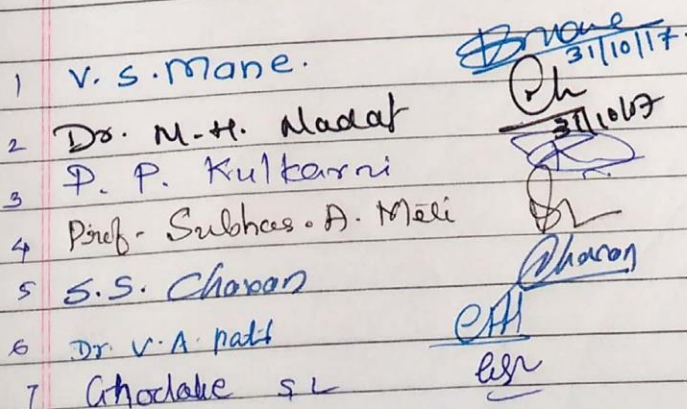 1 V. S. Mane. 31/10/17.
2 Dr. M. H. Nadaf 31/10/17
3 P. P. Kulkarni
4 Prof. Subhas. A. Meli
5 S.S. Chavan Chavan
6 Dr. V. A. patil
7 Ghodake S L